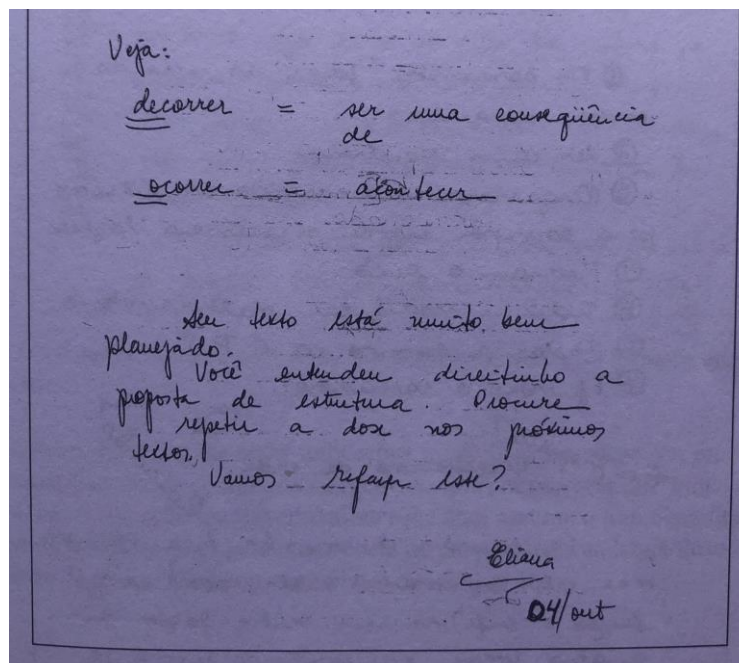 Veja:
decorrer = ser uma conseqüência
de
ocorrer = acontecer
Seu texto está muito bem
planejado.
Você entendeu direitinho a
proposta de estrutura. Procure
repetir a dose nos próximos
textos.
Vamos refazer este?
Eliana
04/out